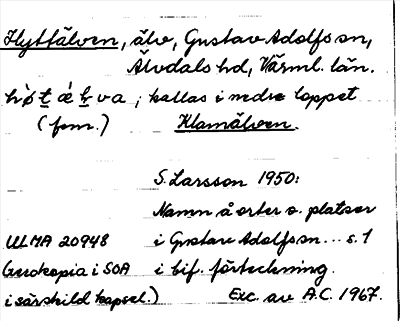 Hyttälven, älv, Gustav Adolfs sn,
Älvdals hd, Värml. län.
kallas i nedre loppet
(fem.) Klamälven.
S. Larsson 1950:
Namn å orter o. platser
ULMA 20948 i Gustav Adolfs sn... s. 1
(xerokopia i SOA i bif. förteckning.
i särskild kapsel.) Exc. av A.C. 1967.